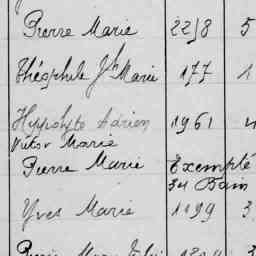 Pierre Marie 2258 5
Théophile Jh Marie 177 1
Hyppolyte Adrien 1961 4
Victor Marie
Pierre Marie Exempté
Yves Marie 1199 3